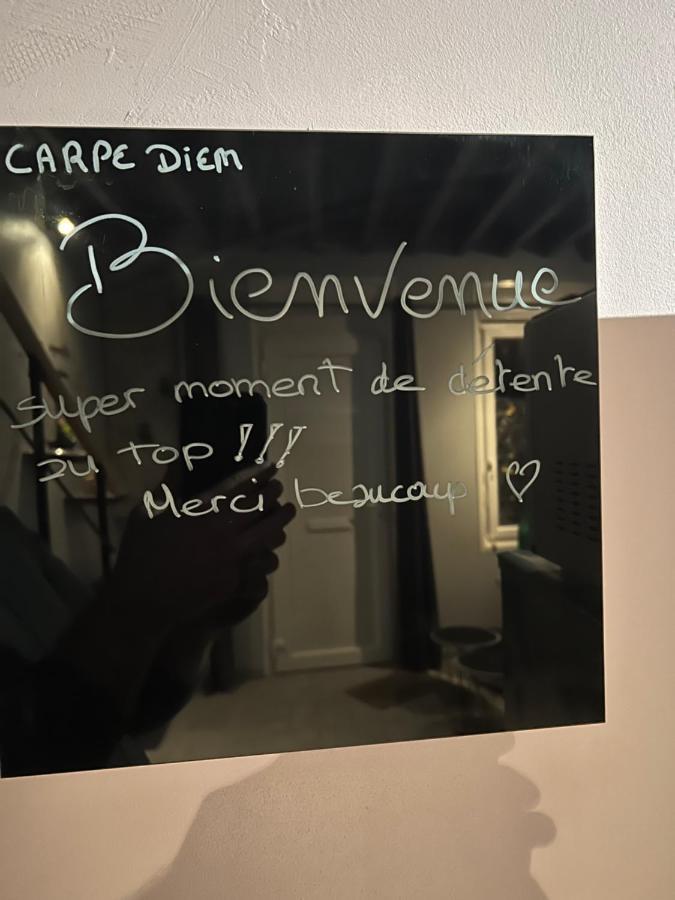 CARPE DiEM
Bienvenue
super moment de détente
au top !!!
Merci beaucoup ♡